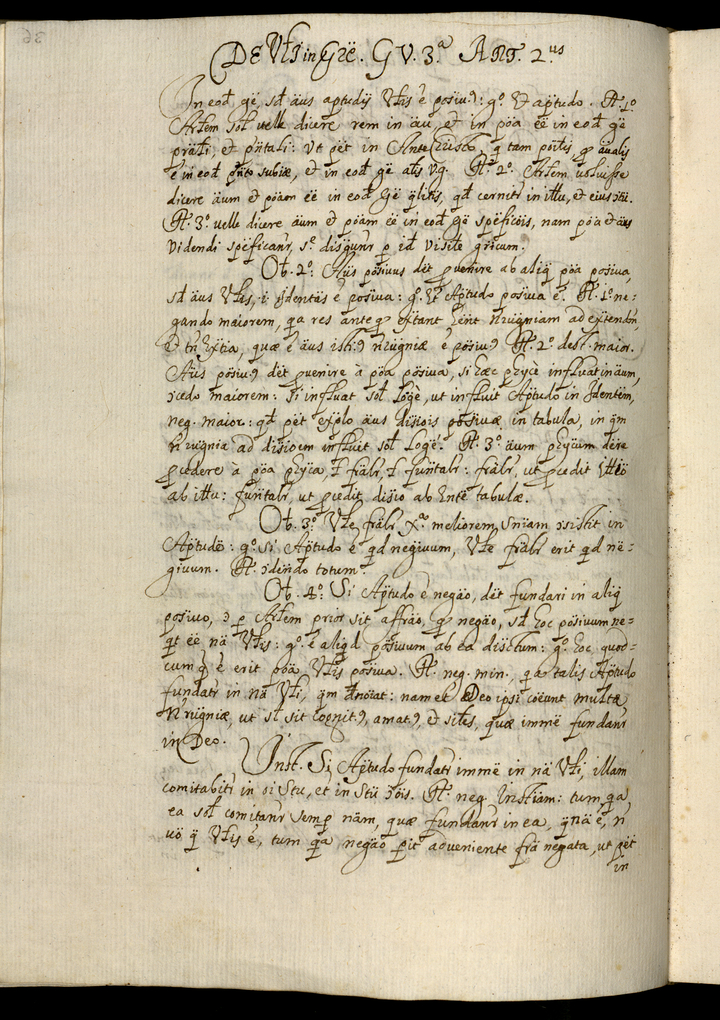 De Vłi in Gr̄e. Q V. 3.ª Art. 2.us
In eod gē, sd āus aptudij Vłis ē posiu9: gº et aptudo. R. 1º
Artem soł velle dicere rem in āu, et in pōa ēē in eod gē
prātłi, et pn̄tali: Vt pēt in Ante Christo, q tam poīlis, qͣ āualis
ē in eod pn̄to subiæ, et in eod gē alis vg. R. 2º. Artem voluisse
dicere āum et pōam ēē in eod gē qlitis, qd cernitr in ittu, et eius
R. 3º velle dicere āum et pōam ēē in eod gē speficōis, nam pōa et āus
videndi speficanr, sᵉ disgunr p id visile
Ob. 2º. Āus posiuus dēt puenire ab aliq pōa posiua,
sd āus Vłis, i. Identās ē posiua: gº et Aptudo posiua ē. R. 1º ne-
gando maiorem, qa res anteq extant hēnt nrugniam ad extendm,
et tn̄ extia, quæ ē āus isti9 nrugniæ ē posiu9. R. 2º dest. maior.
Āus posiu9 dēt puenire à pōa posiua, si hæc physcē influat in āum,
ɔcedo maiorem: si influat soł Logē, ut influit Aptudo in Identem,
neg. maior: qd pēt explo āus disiōis posiuæ in tabula, in qm
nrugnia ad disiōem influit soł Logē. R. 3º āum physcum dēre
pcedere à pōa physca, ł frālr, ł fun̄talr: frālr, ut pcedit
ab ittu: fun̄talr, ut pcedit disio ab Ente tabulæ.
Ob. 3º Vłe frālr xª meliorem sn̄iam ɔsistit in
Aptudē: gº si Aptudo ē qd negiuum, Vłe frālr erit qd ne-
giuum. R. ɔdendo totum.
Ob. 4º. Si Aptudo ē negāo, dēt fundari in aliq
posiuo, ɔ p Artem prior sit affrāo, qͣ negāo, sd hoc posiuum ne-
qt ēē nā Vłis: gº. ē aliqd posiuum ab ea disctum: gº. hoc quod-
cumq ē erit pōa Vłis posiua. R. neg. min., qa talis Aptudo
fundatr in nā Vłi, qm dn̄otat: nam et Deo ipsi coēunt multæ
nrugniæ, ut sł sit cognit9, amat9, et siłes, quæ immē fundanr
in Deo.
Inst. Si Aptudo fundatr immē in nā Vłi, illam
comitabitr in oi Stu, et in Stu ɔōis. R. neg. Instiam: tum, qa
ea soł comitanr semp nām, quæ fundanr in ea, qͣ nā ē, n̄
uō q̄ Vłis ē, tum qa negāo pit adveniente frā negata, ut pēt
in